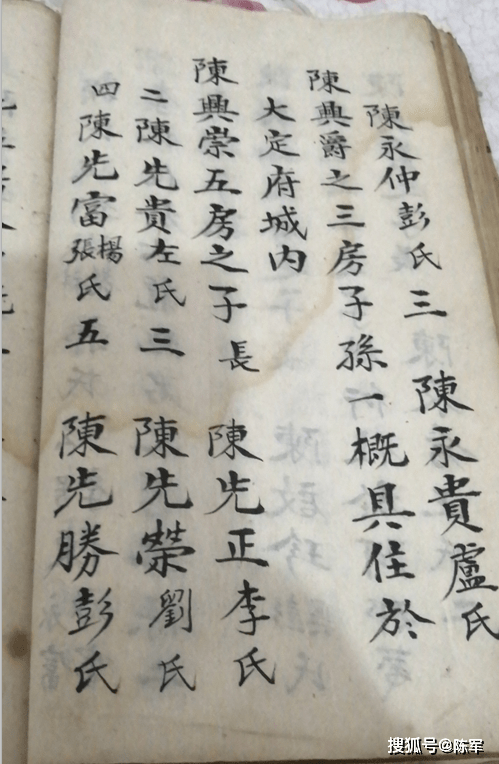 陳永仲彭氏三 陳永貴盧氏
陳興爵之三房子孫一概具住於
大定府城内
陳興崇五房之子長 陳先正李氏
二陳先貴左氏三 陳先榮劉氏
四陳先富楊張氏五 陳先勝彭氏
搜狐号@陈军